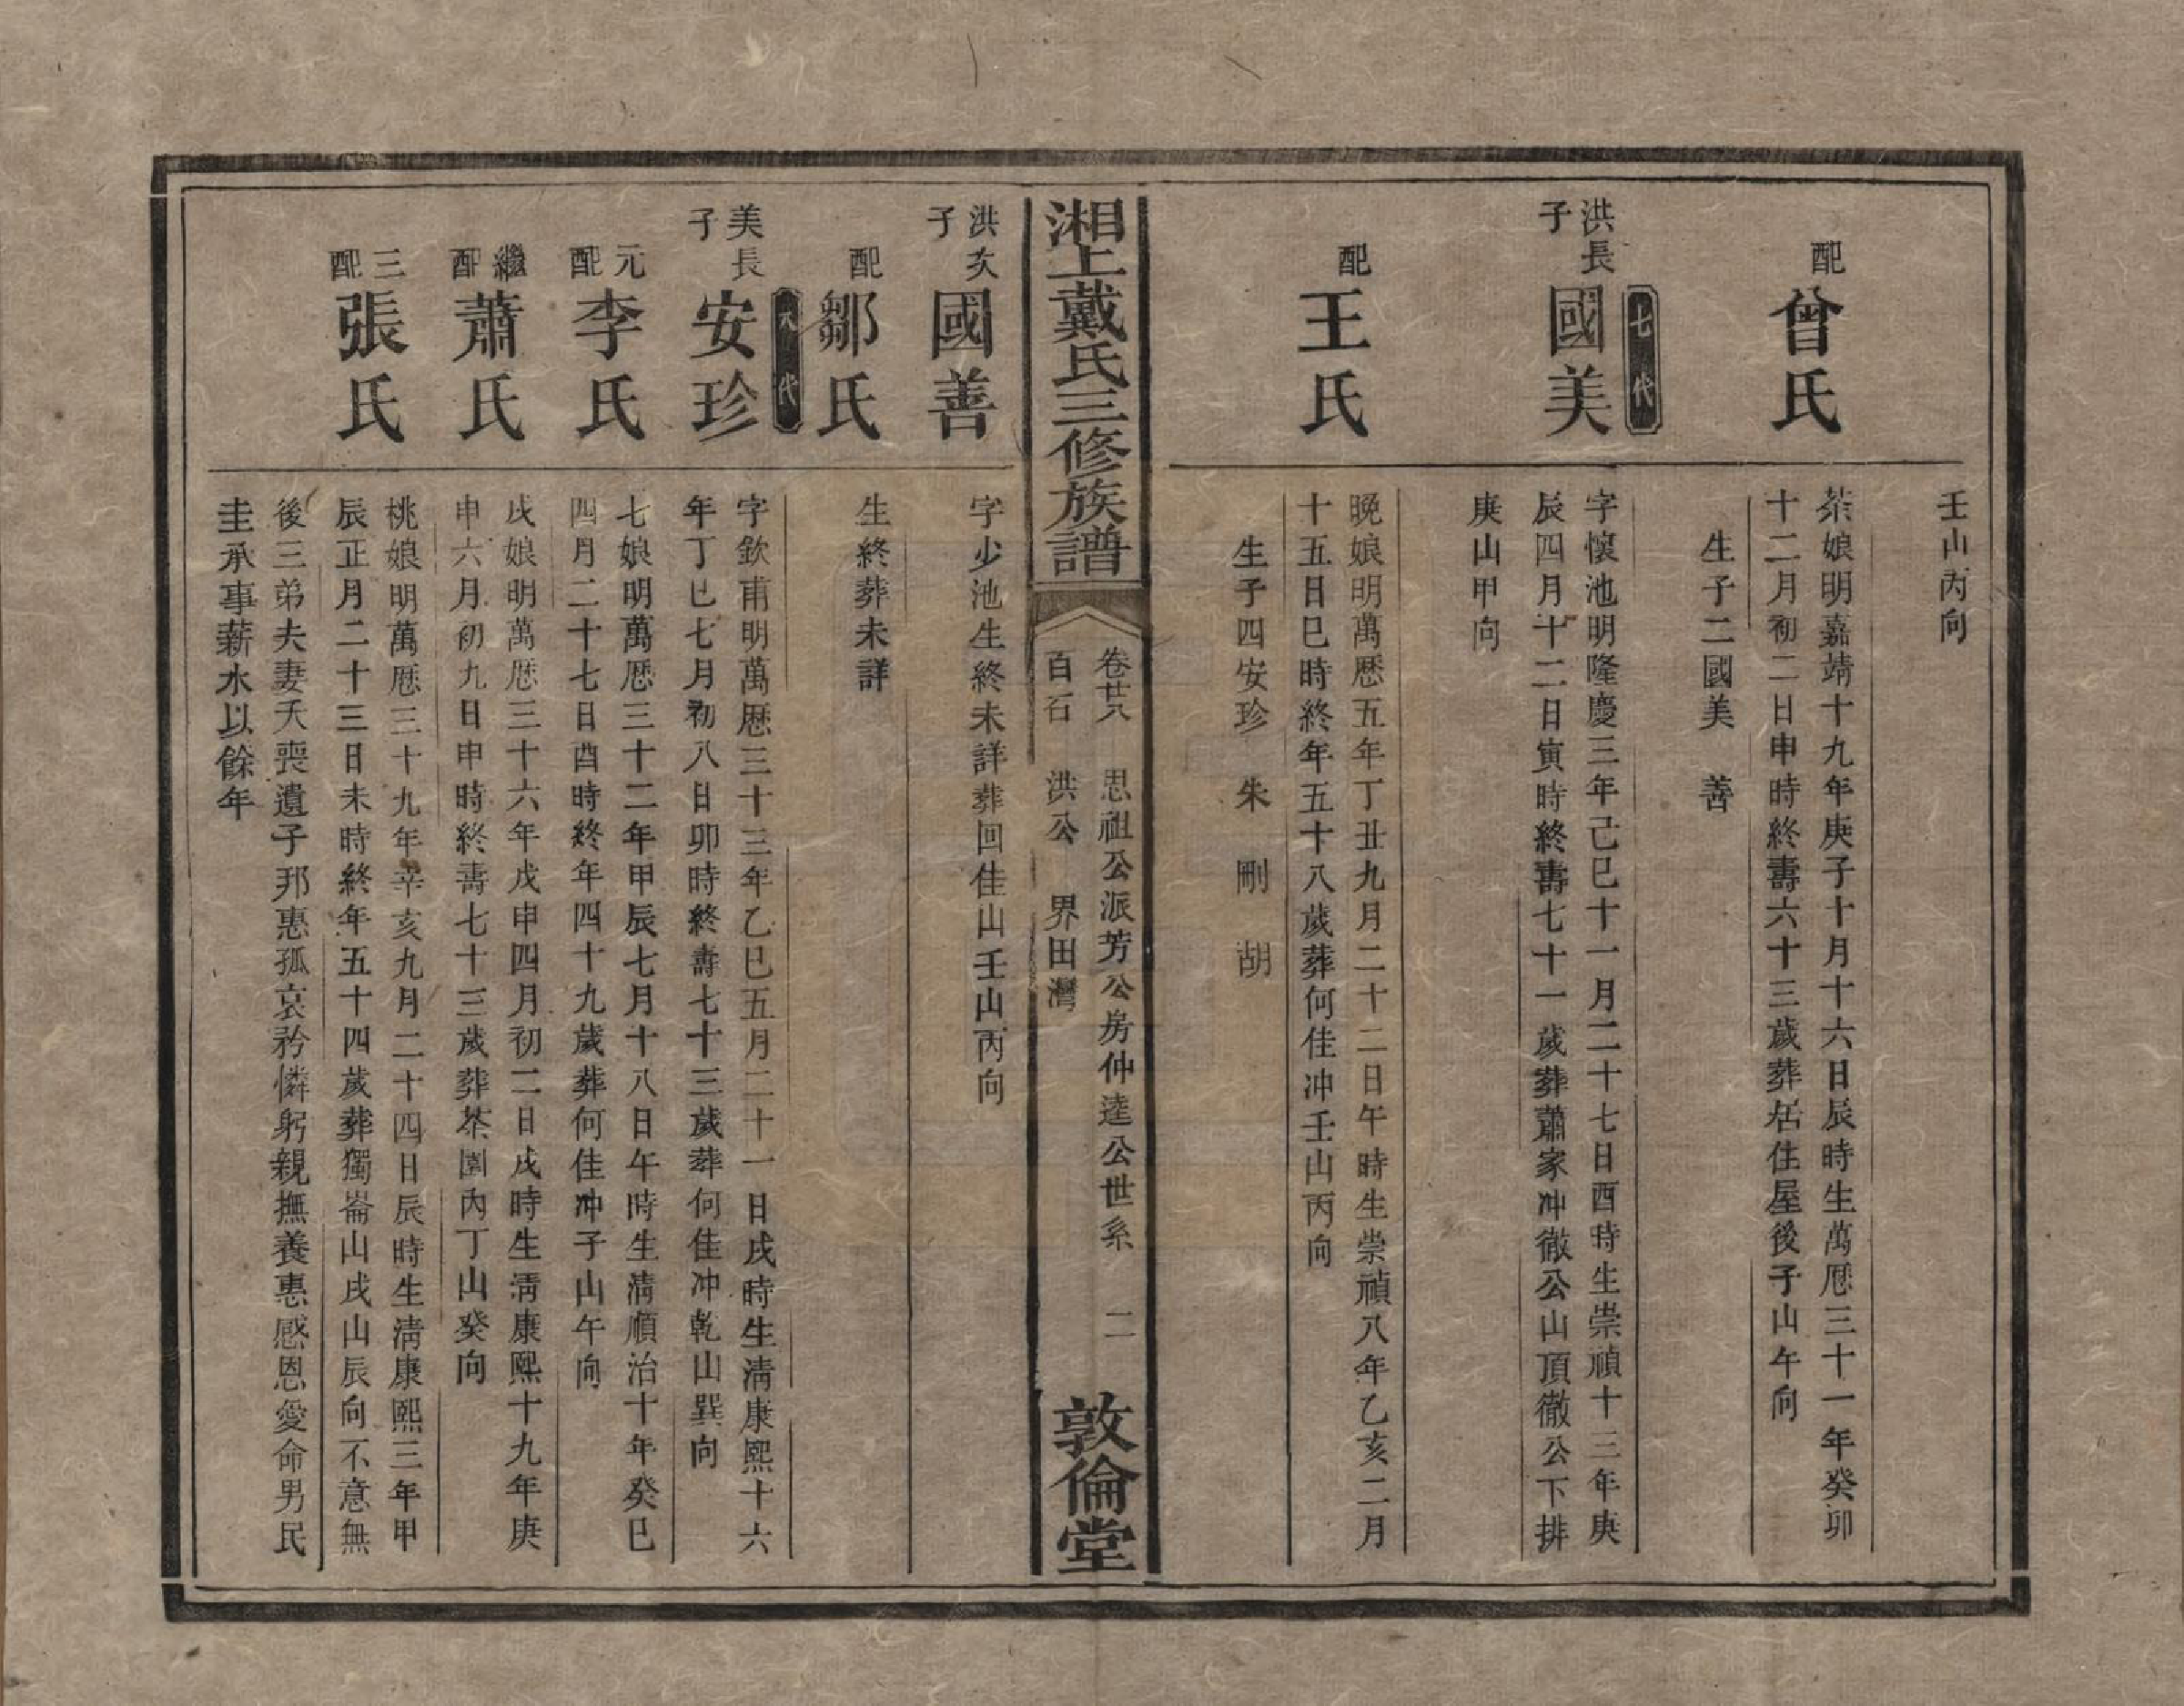 壬山丙向
配曾氏
茶娘明嘉靖十九年庚子十月十六日辰時生萬厯三十一年癸卯
十二月初二日申時終壽六十三歲葬居住屋後子山午向
生子二國美 善
七代
洪長子國美
字懷池明隆慶三年己巳十一月二十七日酉時生崇禎十三年庚
辰四月十二日寅時終壽七十一歲葬蕭家冲徹公山頂徹公下排
庚山甲向
配王氏
晚娘明萬厯五年丁丑九月二十二日午時生崇禎八年乙亥二月
十五日巳時終年五十八歲葬何佳冲壬山丙向
生子四安珍 朱 剛 胡
湘上戴氏三修族譜
卷廿六 思祖公派芳公房仲逵公世系 二
百石 洪公 界田灣
敦倫堂
洪次子國善
字少池生終未詳葬回佳山壬山丙向
配鄒氏
生終葬未詳
八代
美長子安珍
字欽甫明萬厯三十三年乙巳五月二十一日戌時生清康熙十六
年丁巳七月初八日卯時終壽七十三歲葬何佳冲乾山巽向
元配李氏
七娘明萬厯三十二年甲辰七月十八日午時生清順治十年癸巳
四月二十七日酉時終年四十九歲葬何佳冲子山午向
繼配蕭氏
戌娘明萬厯三十六年戊申四月初二日戌時生清康熙十九年庚
申六月初九日申時終壽七十三歲葬茶園內丁山癸向
三配張氏
桃娘明萬厯三十九年辛亥九月二十四日辰時生清康熙三年甲
辰正月二十三日未時終年五十四歲葬獨崙山戌山辰向不意無
後三弟夫妻夭喪遺子邦惠孤哀矜憐躬親撫養惠感恩愛命男民
圭承事薪水以餘年